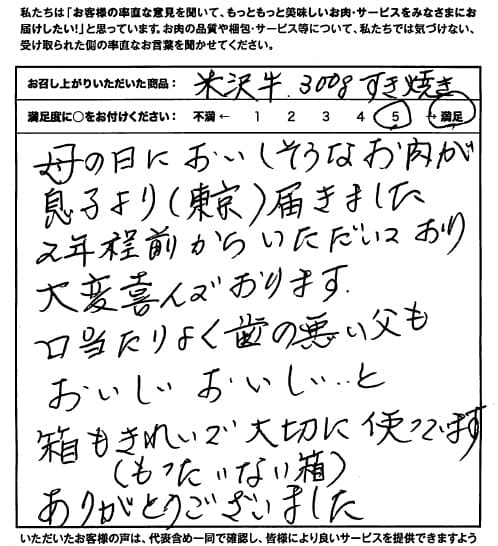 私たちは「お客様の率直な意見を聞いて、もっともっと美味しいお肉・サービスをみなさまにお
届けしたい！」と思っています。お肉の品質や梱包・サービス等について、私たちでは気づけない、
受け取られた側の率直なお言葉を聞かせてください。
お召し上がりいただいた商品： 米沢牛.300gすき焼き
満足度に○をお付けください： 不満 ← 1 2 3 4 5 → 満足
母の日に おいしそうなお肉が
息子より(東京)届きました
2年程前からいただいており
大変喜んでおります.
口当たりよく歯の悪い父も
おいしい おいしい..と
箱もきれいで大切に使っています
(もったいない箱)
ありがとうございました
いただいたお客様の声は、代表含め一同で確認し、皆様により良いサービスを提供できますよう